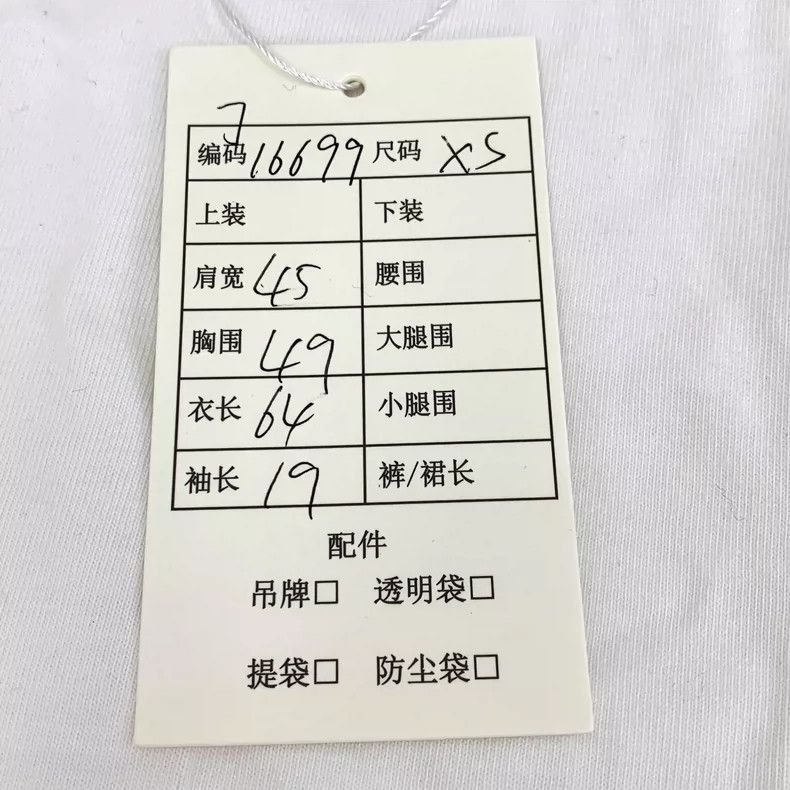 编码 16699 尺码 XS
上装 下装
肩宽 45 腰围
胸围 49 大腿围
衣长 64 小腿围
袖长 19 裤/裙长
配件
吊牌□ 透明袋□
提袋□ 防尘袋□